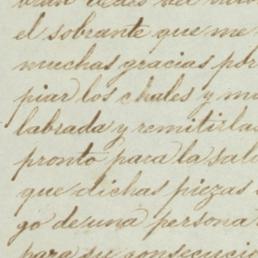 el sobrante que me
muchas gracias por
piar los chales y mu
labrada y remitirlas
pronto para la sal
que dichas piezas
go de una persona
para su consecucio